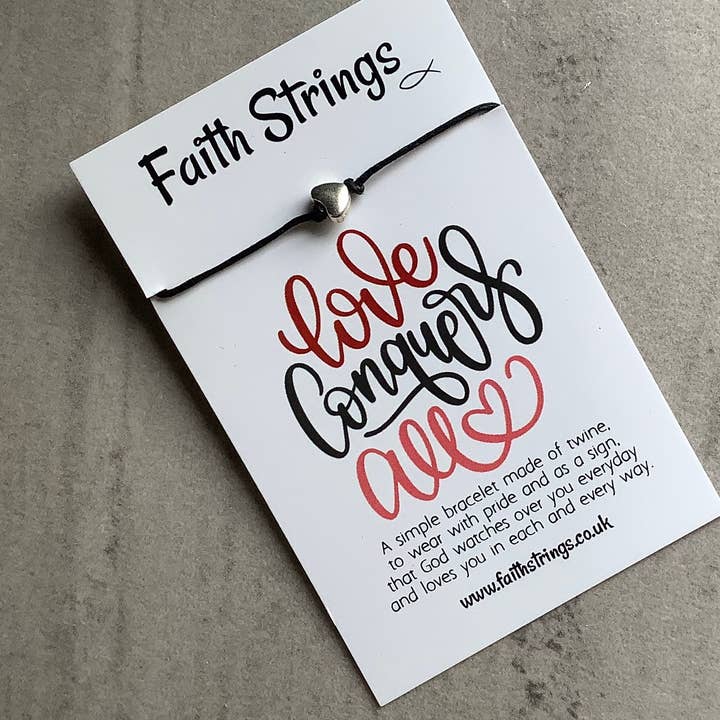 Faith Strings
love
Conquers
all
A simple bracelet made of twine,
to wear with pride and as a sign,
that God watches over you everyday
and loves you in each and every way.
www.faithstrings.co.uk